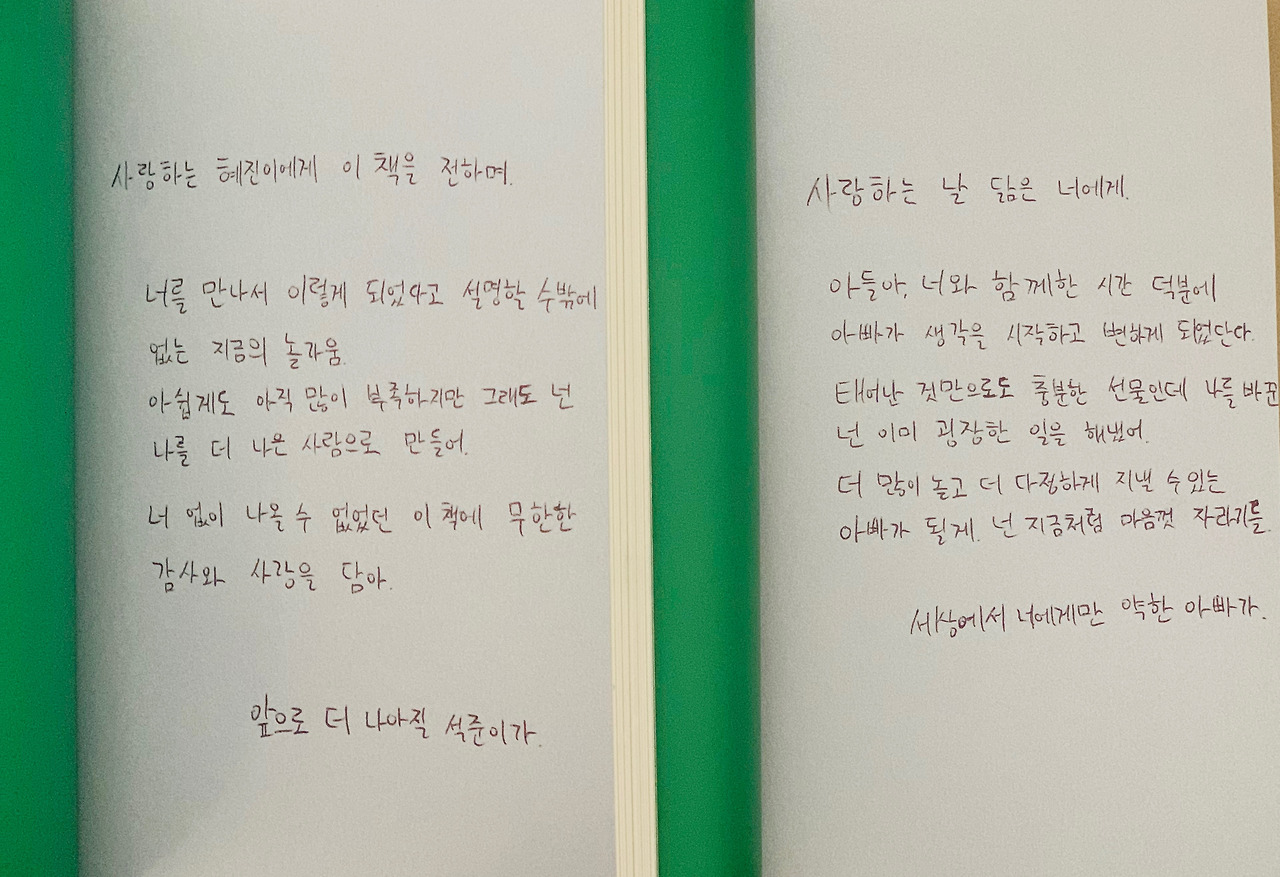 사랑하는 혜진이에게 이 책을 전하며.
너를 만나서 이렇게 되었다고 설명할 수밖에
없는 지금의 놀라움.
아쉽게도 아직 많이 부족하지만 그래도 넌
나를 더 나은 사람으로 만들어.
너 없이 나올 수 없었던 이 책에 무한한
감사와 사랑을 담아.
앞으로 더 나아질 석준이가.
사랑하는 날 닮은 너에게.
아들아, 너와 함께한 시간 덕분에
아빠가 생각을 시작하고 변하게 되었단다.
태어난 것만으로도 충분한 선물인데 나를 바꾼
넌 이미 굉장한 일을 해냈어.
더 많이 놀고 더 다정하게 지낼 수 있는
아빠가 될게. 넌 지금처럼 마음껏 자라기를.
세상에서 너에게만 약한 아빠가.